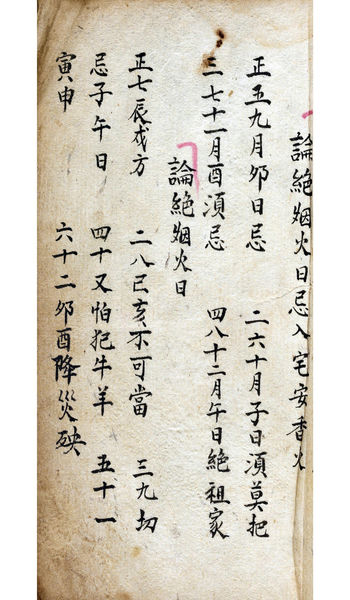 論絶烟火日忌入宅安香火
正五九月卯日忌　二六十月子日須莫把
三七十一月酉須忌　四八十二月午日絶祖家
論絶烟火日
正七辰戌方　二八巳亥不可當　三九切
忌子午日　四十又怕犯牛羊　五十一
寅申　六十二卯酉降災殃